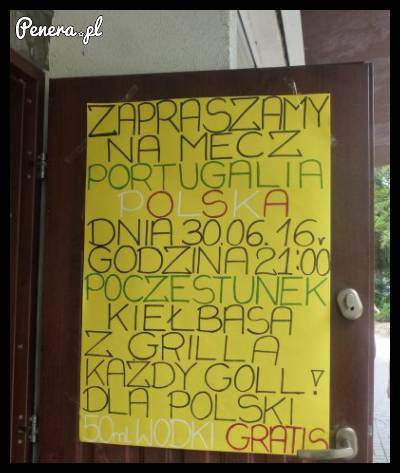 Penera.pl
ZAPRASZAMY
NA MECZ
PORTUGALIA
POLSKA
DNIA 30.06.16r.
GODZINA 21:00
POCZESTUNEK
KIEŁBASA
Z GRILLA
KAŻDY GOLL!
DLA POLSKI
50ml WODKI GRATIS